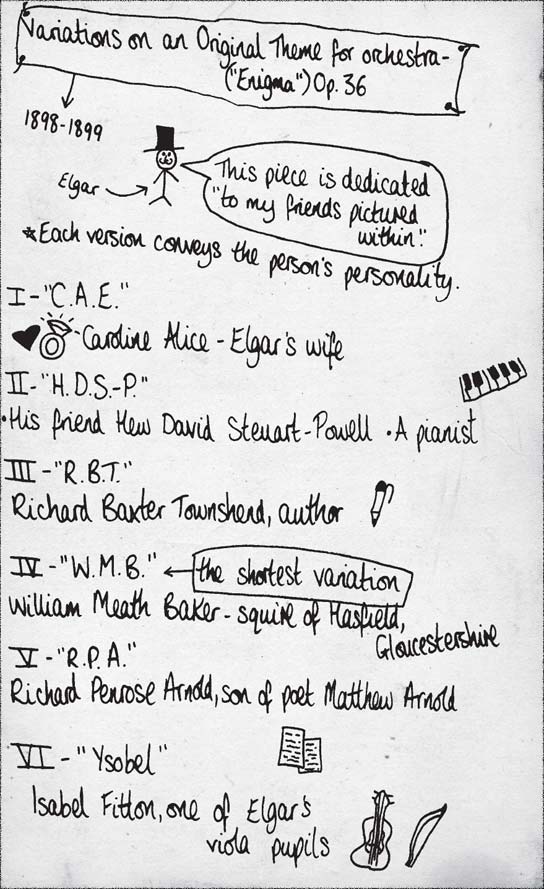 Variations on an Original Theme for orchestra-
("Enigma") Op. 36
1898-1899
Elgar
This piece is dedicated
"to my friends pictured
within."
*Each version conveys the person's personality.
I-"C.A.E."
-Caroline Alice - Elgar's wife
II-"H.D.S.-P."
·His friend Hew David Steuart-Powell ·A pianist
III-"R.B.T."
Richard Baxter Townshend, author
IV-"W.M.B."
the shortest variation
William Meath Baker - squire of Hasfield,
Gloucestershire
V-"R.P.A."
Richard Penrose Arnold, son of poet Matthew Arnold
VI-"Ysobel"
Isabel Fitton, one of Elgar's
viola pupils